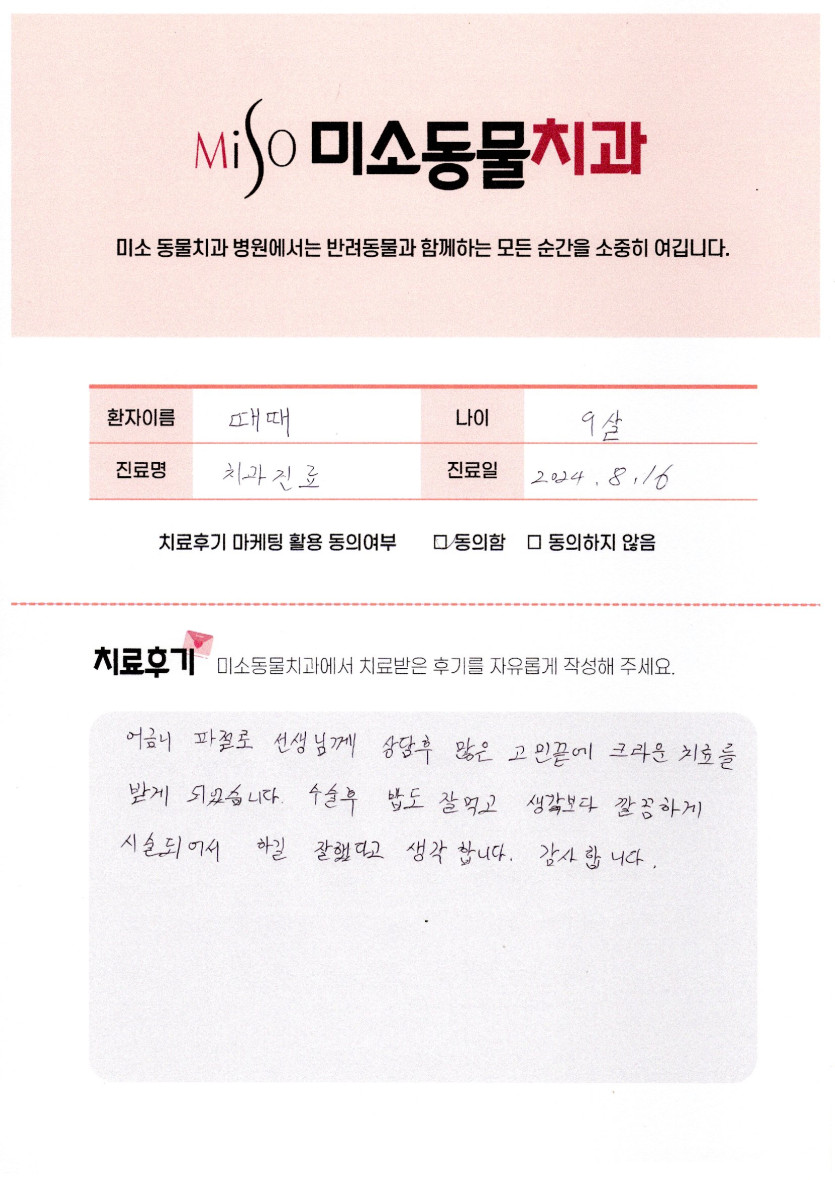 MiSO 미소동물치과
미소 동물치과 병원에서는 반려동물과 함께하는 모든 순간을 소중히 여깁니다.
환자이름 때때 나이 9살
진료명 치과진료 진료일 2024. 8. 16
치료후기 마케팅 활용 동의여부 ☑동의함 □ 동의하지 않음
치료후기 미소동물치과에서 치료받은 후기를 자유롭게 작성해 주세요.
어금니 파절로 선생님께 상담후 많은 고민끝에 크라운 치료를
받게 되었습니다. 수술후 밥도 잘먹고 생각보다 깔끔하게
시술되어서 하길 잘했다고 생각합니다. 감사합니다.